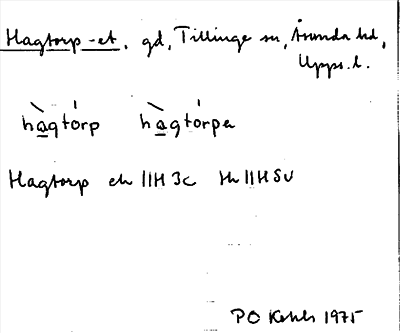 Hagtorp -et, gd, Tillinge sn, Åsunda hd,
Upps. l.
hàgtórp hàgtórpa
Hagtorp ek 11H 3c 11H SV
PO 1975